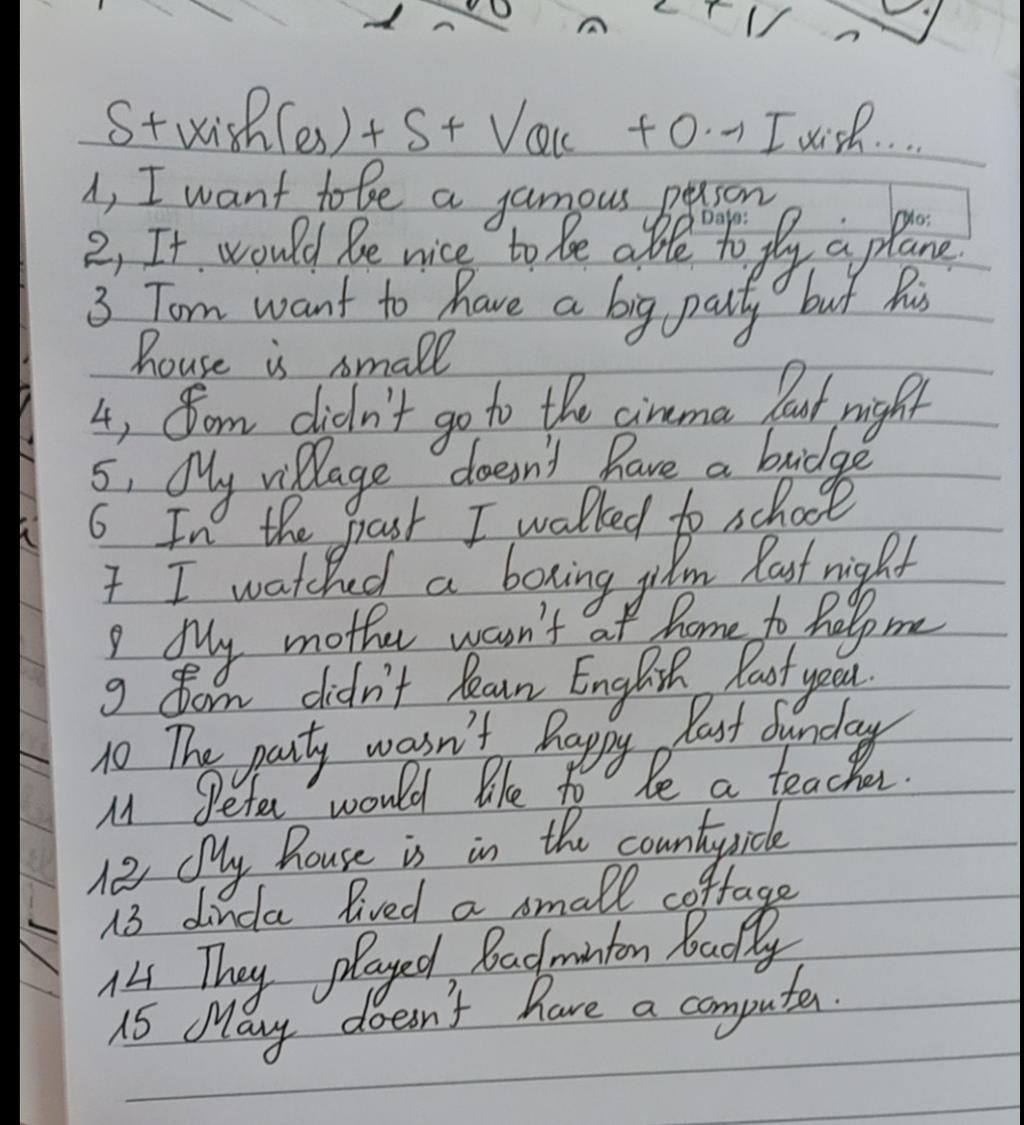 S + wish(es) + S + VQK + O. → I wish....
1, I want to be a famous person
Date: No:
2, It would be nice to be able to fly a plane.
3 Tom want to have a big party but his
house is small
4, Tom didn't go to the cinema last night
5, My village doesn't have a bridge
6 In the past I walked to school
7 I watched a boring film last night
8 My mother wasn't at home to help me
9 Tom didn't learn English last year.
10 The party wasn't happy last Sunday
11 Peter would like to be a teacher.
12 My house is in the countyside
13 Linda lived a small cottage
14 They played badminton badly
15 Mary doesn't have a computer.